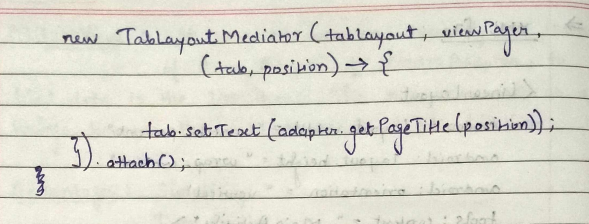 new TabLayoutMediator(tabLayout, viewPager,
(tab, position) → {
tab.setText(adapter.getPageTitle(position));
}).attach();
}
}